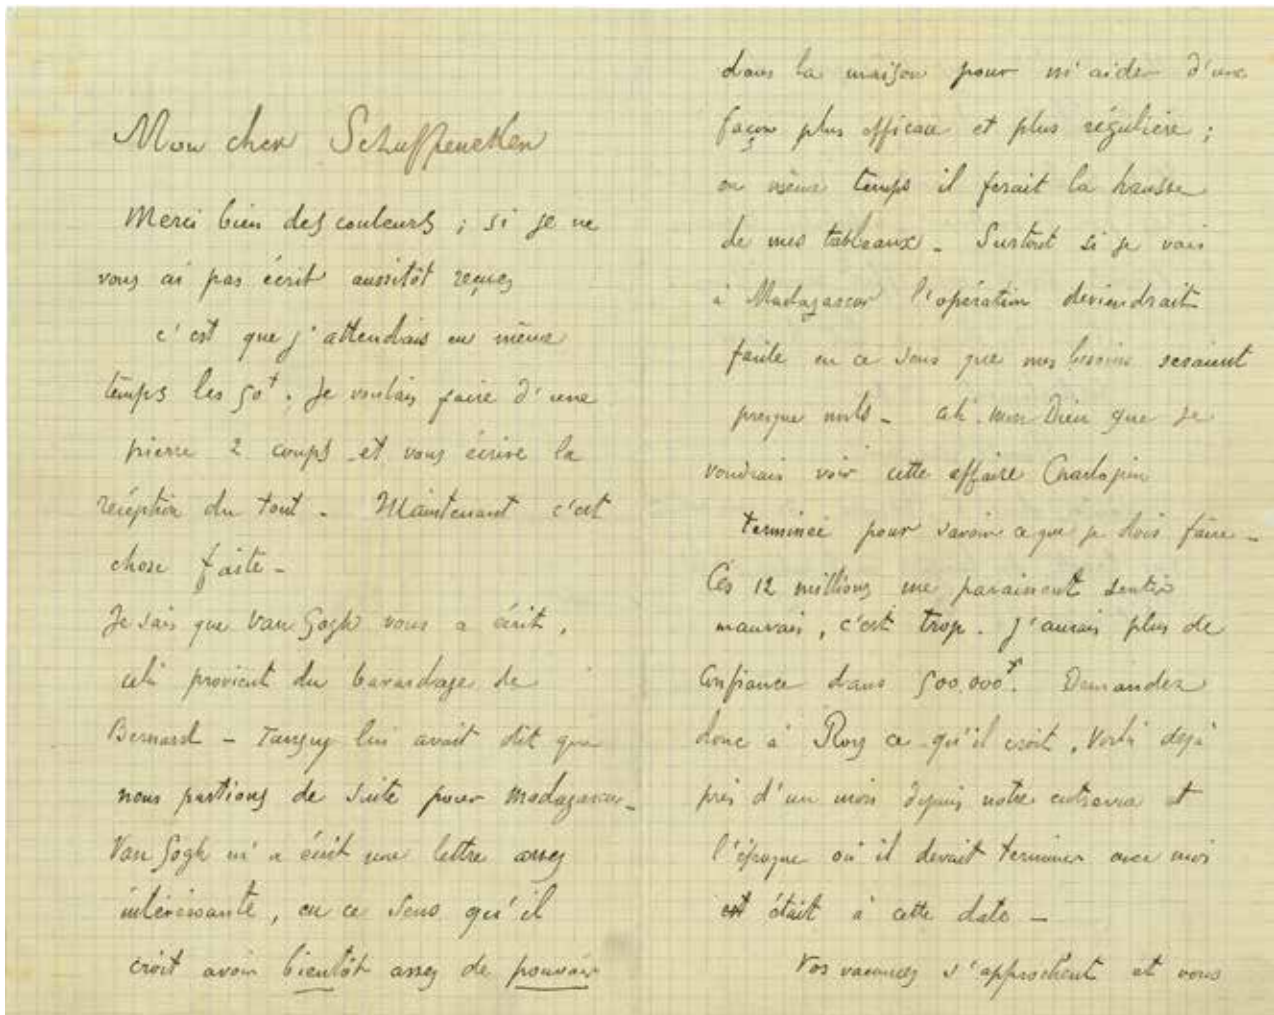 Mon cher Schuffenecker
Merci bien des couleurs ; si je ne
vous ai pas écrit aussitôt reçues
c'est que j'attendais en même
temps les 50f. Je voulais faire d'une
pierre 2 coups et vous écrire la
réception du tout - Maintenant c'est
chose faite -
Je sais que Van Gogh vous a écrit,
cela provient du bavardage de
Bernard - Tanguy lui avait dit que
nous partions de suite pour Madagascar -
Van Gogh m'a écrit une lettre assez
intéressante, en ce sens qu'il
croit avoir bientôt assez de pouvoir
dans la maison pour m'aider d'une
façon plus efficace et plus régulière ;
en même temps il ferait la hausse
de mes tableaux - Surtout si je vais
à Madagascar l'opération deviendrait
facile en ce sens que mes besoins seraient
presque nuls - ah. mon Dieu que je
voudrais voir cette affaire Charlopin
terminée pour savoir ce que je dois faire -
Ces 12 millions me paraissent sentir
mauvais, c'est trop. J'aurais plus de
confiance dans 500.000f. Demandez
donc à Roy ce qu'il croit. Voilà déjà
près d'un mois depuis notre entrevue et
l'époque où il devait terminer avec moi
était à cette date -
Vos vacances s'approchent et vous